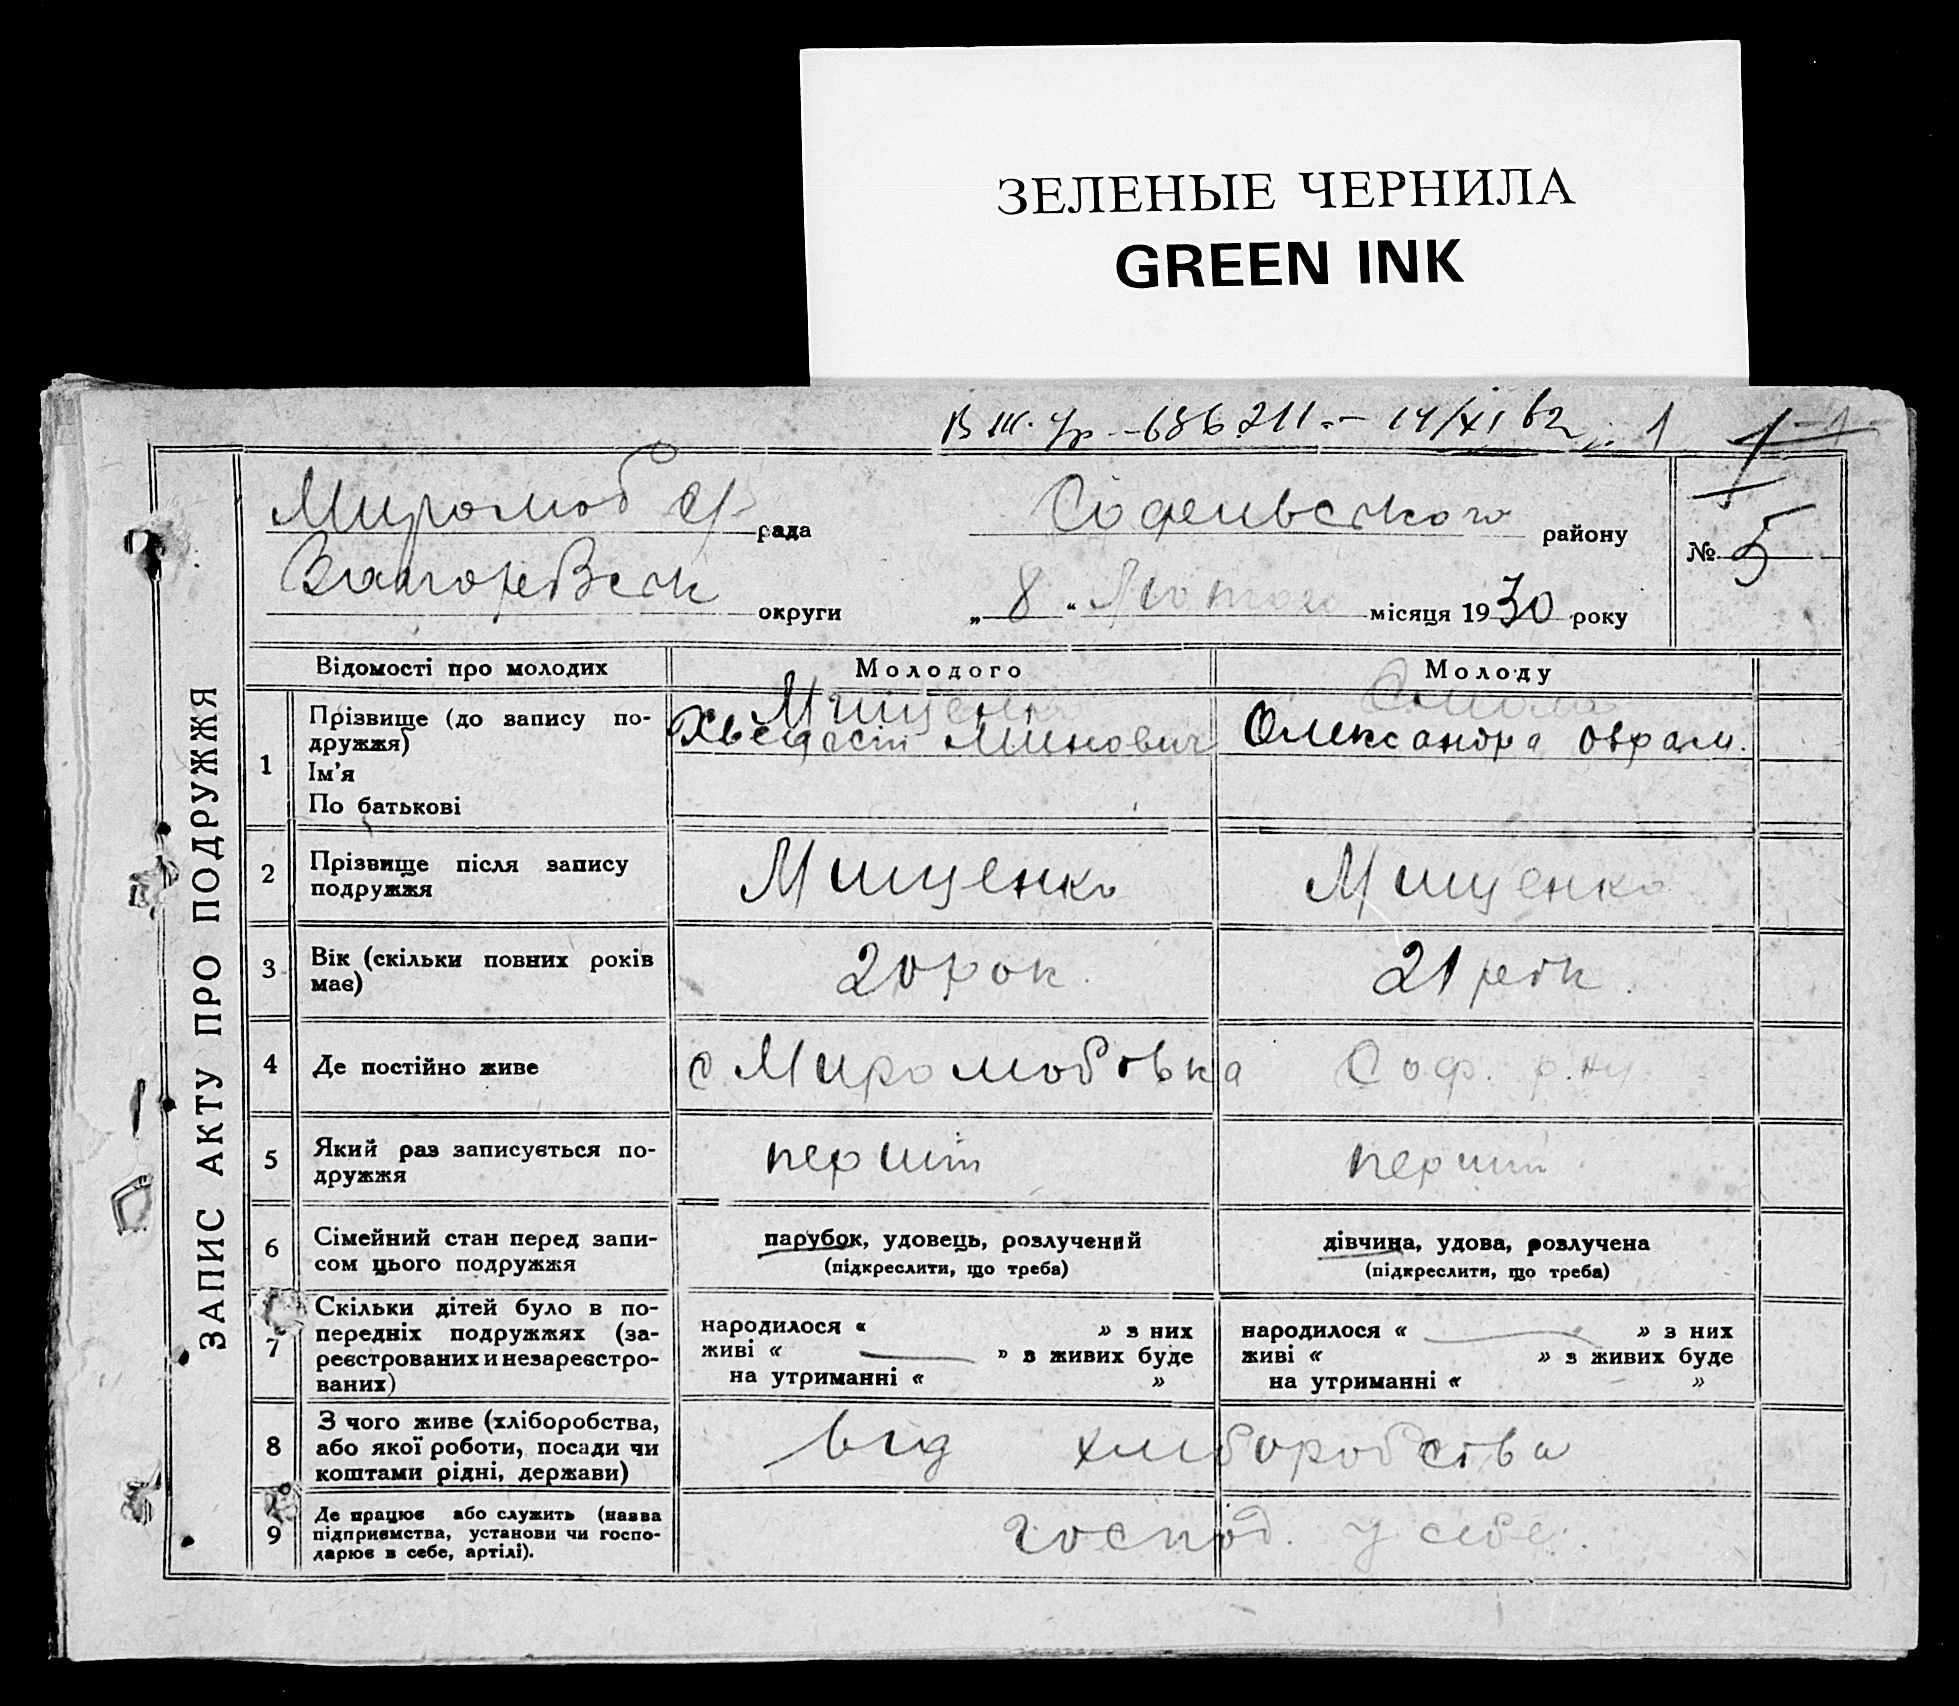 ЗЕЛЕНЫЕ ЧЕРНИЛА
GREEN INK
686211 - 14/XI 62 1
Миролюб с/ рада Софенвського району № 5
округи „ 8 “ Лютого місяця 1930 року
ЗАПИС АКТУ ПРО ПОДРУЖЖЯ
Відомості про молодих Молодого Молоду
1 Прізвище (до запису по-
дружжя)
Ім'я
По батькові
Мищенко
Минович Олександра Оврам.
2 Прізвище після запису
подружжя
Мищенко Мищенко
3 Вік (скільки повних років
має)
20 рок. 21 рік.
4 Де постійно живе с Миролюбовка Соф. р.ну
5 Який раз записується по-
дружжя
перший перший
6 Сімейний стан перед запи-
сом цього подружжя
парубок, удовець, розлучений
(підкреслити, що треба)
дівчина, удова, розлучена
(підкреслити, що треба)
7 Скільки дітей було в по-
передніх подружжях (за-
реєстрованих и незареєстро-
ваних)
народилося « » з них
живі « » з живих буде
на утриманні « »
народилося « » з них
живі « » з живих буде
на утриманні « »
8 З чого живе (хліборобства,
або якої роботи, посади чи
коштами рідні, держави)
від хлиборобства
9 Де працює або служить (назва
підприємства, установи чи госпо-
дарює в себе, артілі).
господ. у себе.